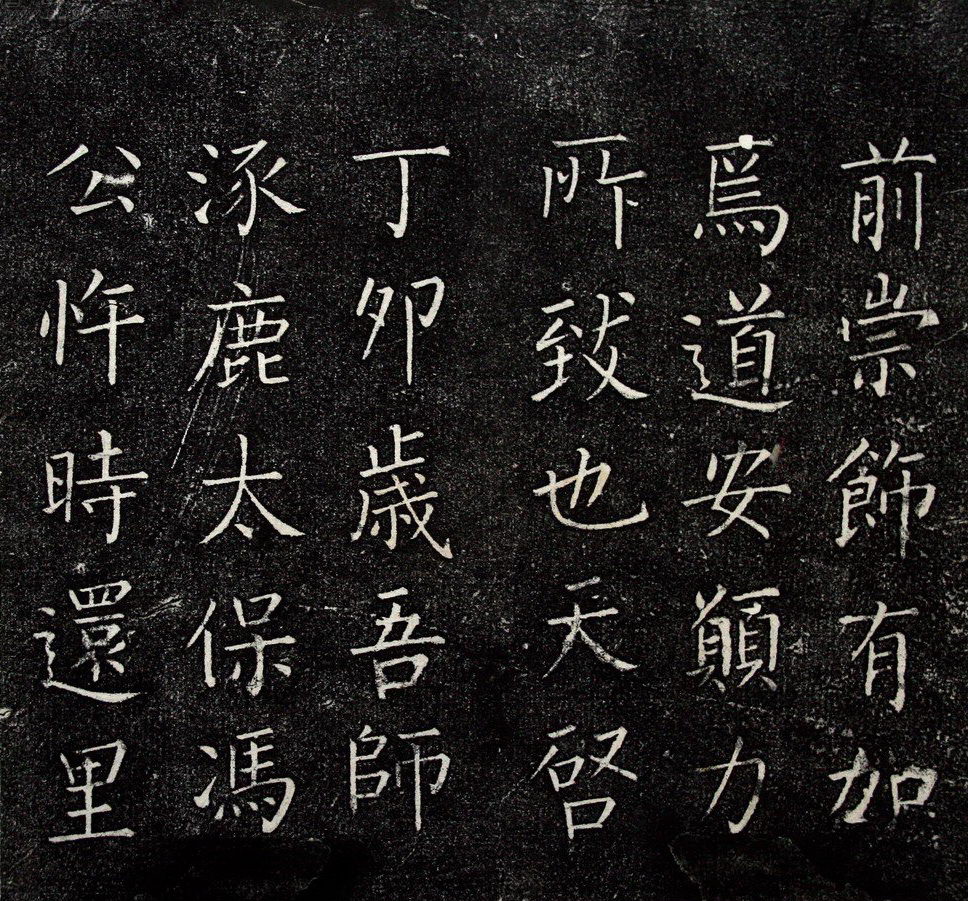 前崇飾有加
為道安顛力
所致也天啓
丁卯歲吾師
涿鹿太保馮
公忤時還里